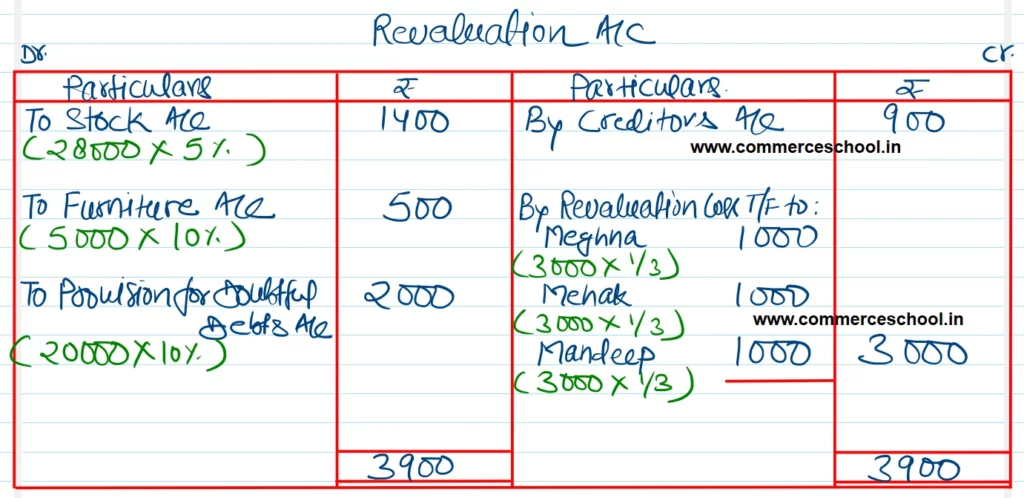 Revaluation A/C
Dr. Cr.
Particulars ₹ Particulars. ₹
To Stock A/c 1400 By Creditors A/c 900
(28000 × 5%.) www.commerceschool.in
To Furniture A/c 500 By Revaluation Loss T/F to:
(5000 × 10%.) Meghna 1000
(3000 × 1/3)
To Provision for Doubtful 2000 Mehak 1000
Debts A/c (3000 × 1/3) www.commerceschool.in
(20000 × 10%.) Mandeep 1000 3000
(3000 × 1/3)
3900 3900